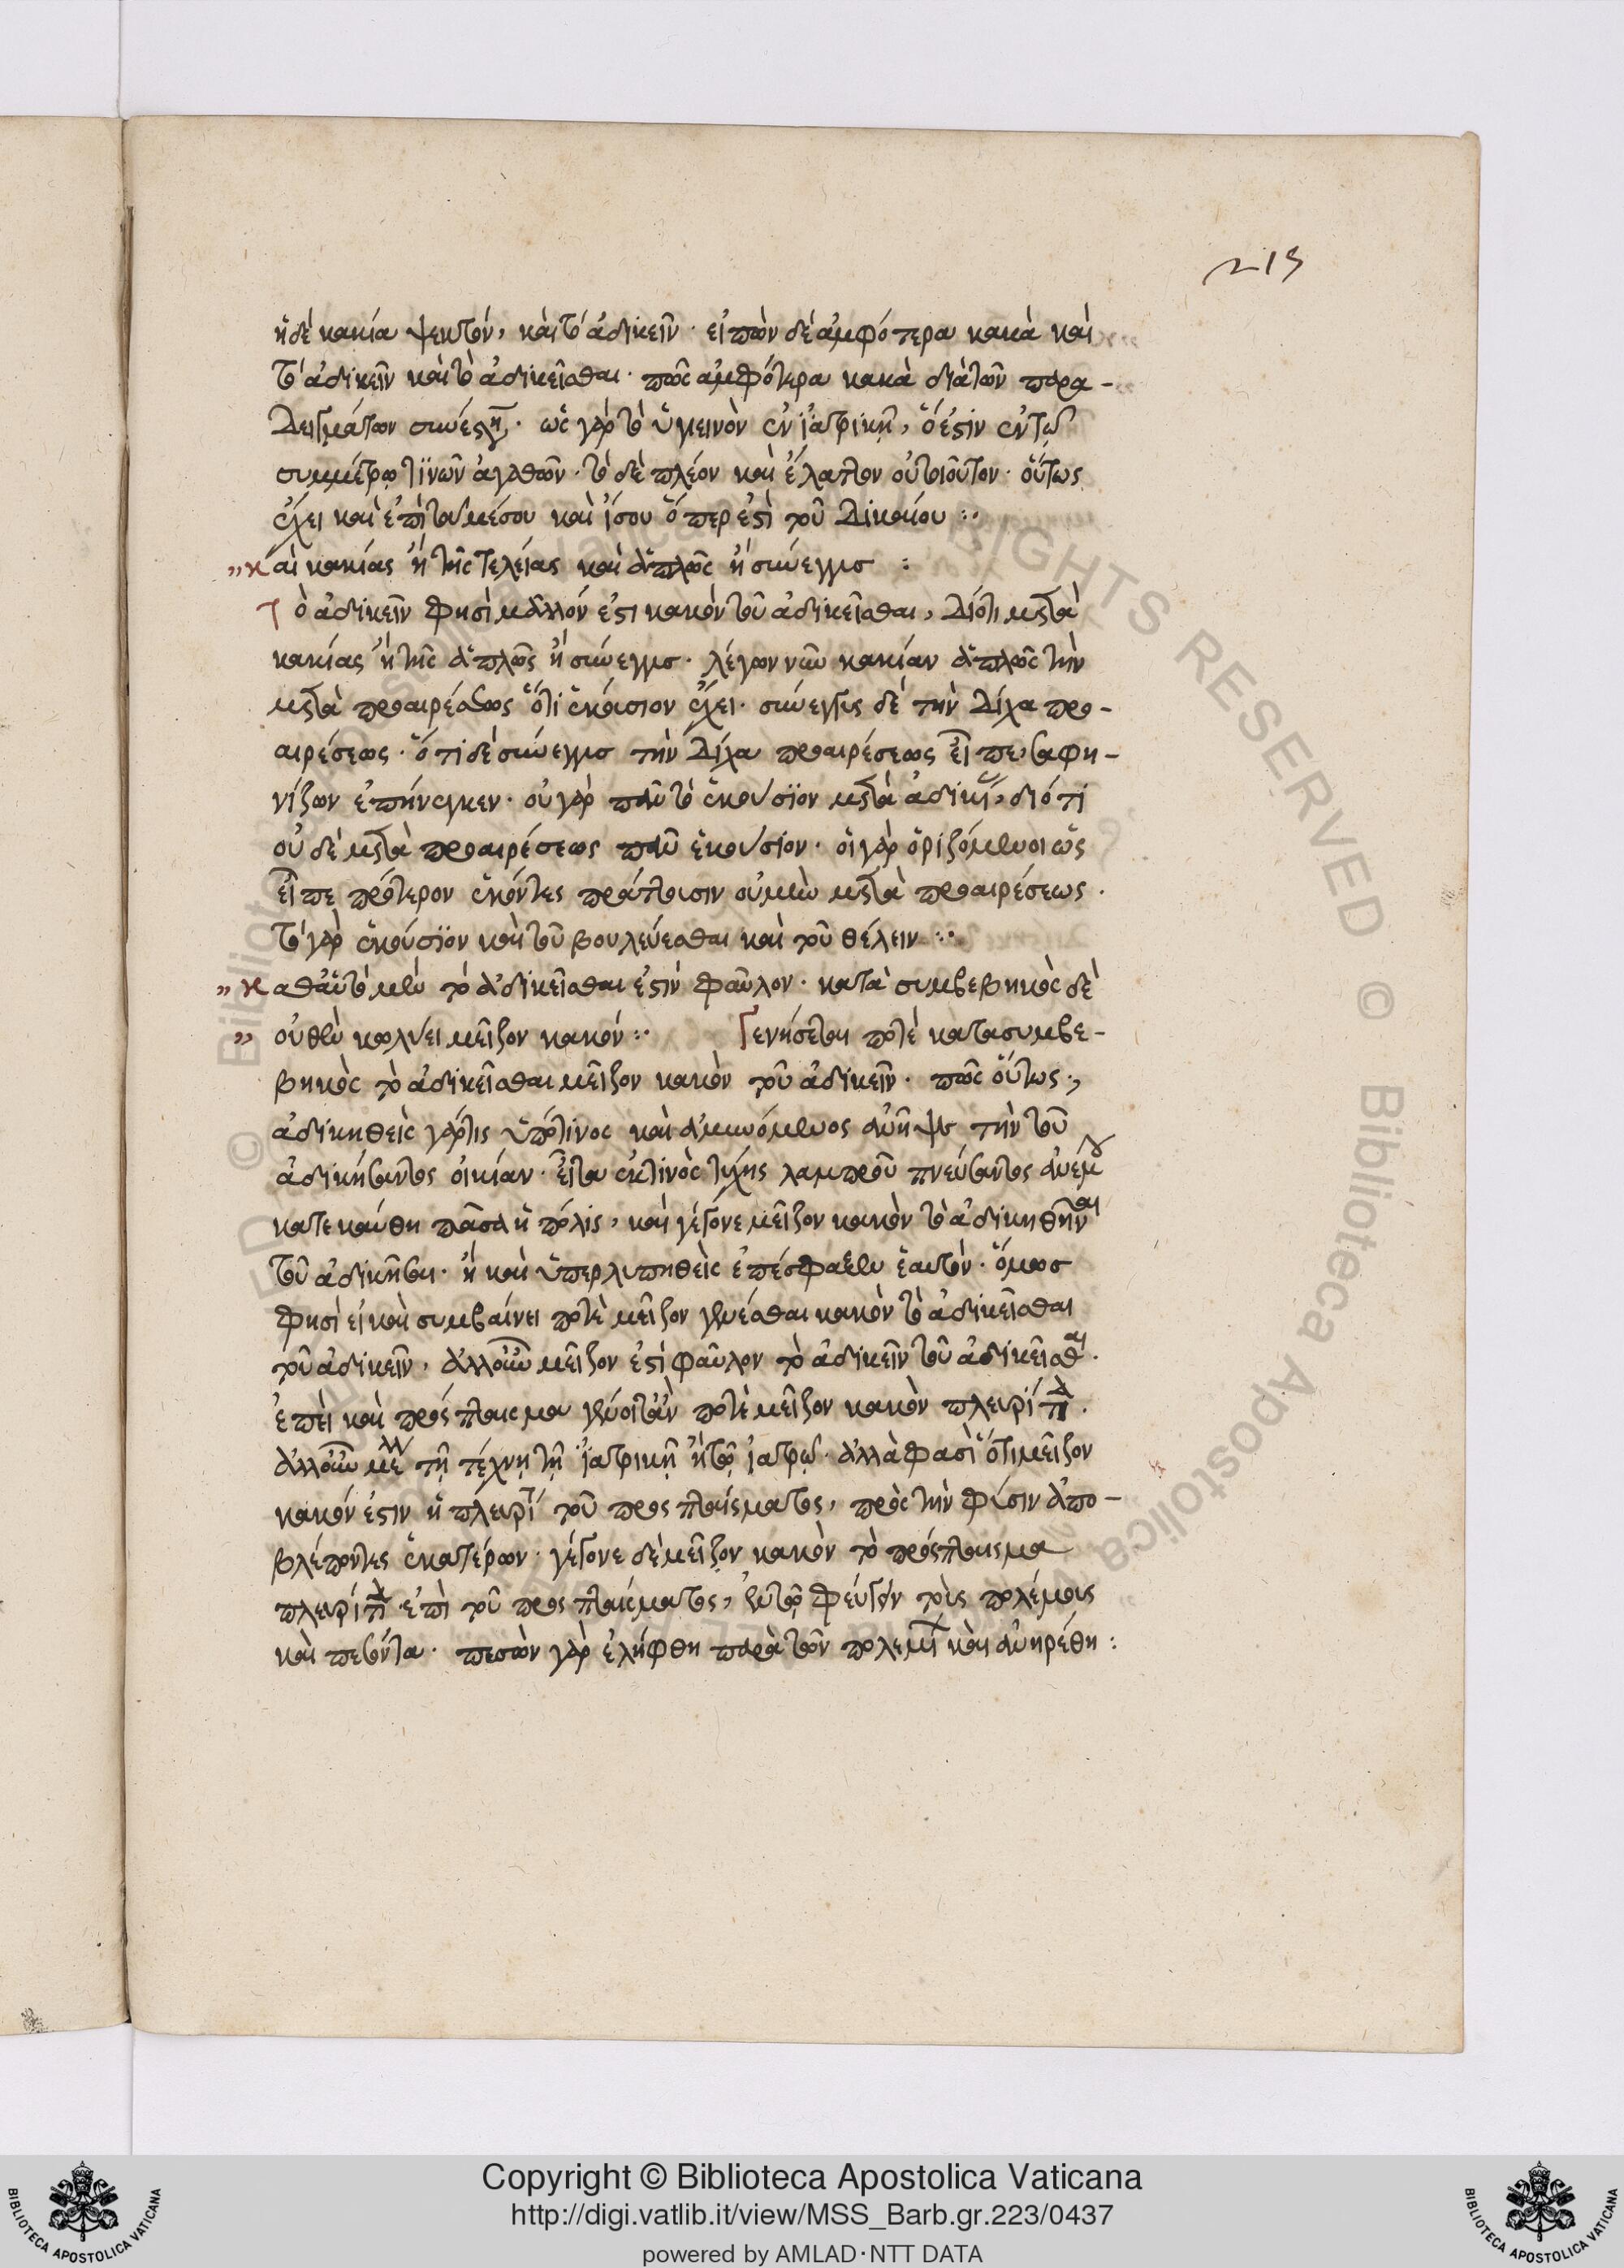 215
ἡ δὲ κακία ψεκτόν, καὶ τὸ ἀδικεῖν· εἰπὼν δὲ ἀμφότερα κακὰ καὶ
τὸ ἀδικεῖν καὶ τὸ ἀδικεῖσθαι· πῶς ἀμφότερα κακὰ διὰ τῶν παρα-
δειγμάτων συνέστη· ὡς γὰρ τὸ ὑγιεινὸν ἐν ἰατρικῇ, ὅ ἐστιν ἐν τῷ
συμμέτρῳ τινῶν ἀγαθῶν· τὸ δὲ πλέον καὶ ἔλαττον οὐ τοιοῦτον· οὕτως
ἔχει καὶ ἐπὶ τοῦ μέσου καὶ ἴσου ὅπερ ἐστὶ τοῦ δικαίου :·
" καὶ κακίας ἢ τῆς τελείας καὶ ἁπλῶς ἢ σύνεγγυς :
Τὸ ἀδικεῖν φησὶ μᾶλλόν ἐστι κακὸν τοῦ ἀδικεῖσθαι, διότι μετὰ
κακίας ἢ τῆς ἁπλῶς ἢ σύνεγγυς· λέγων νῦν κακίαν ἁπλῶς τὴν
μετὰ προαιρέσεως ὅτι ἑκούσιον ἔχει· σύνεγγυς δὲ τὴν δίχα προ-
αιρέσεως· ὅτι δὲ σύνεγγυς τὴν δίχα προαιρέσεως εἶπε, σαφη-
νίζων ἐπήνεγκεν· οὐ γὰρ πᾶν τὸ ἑκούσιον μετὰ ἀδικίας, διότι
οὐδὲ μετὰ προαιρέσεως πᾶν ἑκούσιον· οἱ γὰρ ὀριζόμενοι ὡς
εἶπε πρότερον ἑκόντες πράττουσιν οὐ μὴν μετὰ προαιρέσεως·
τὸ γὰρ ἑκούσιον καὶ τοῦ βουλεύεσθαι καὶ τοῦ θέλειν :·
" καθ' αὑτὸ μὲν τὸ ἀδικεῖσθαί ἐστιν φαῦλον· κατὰ συμβεβηκὸς δὲ
" οὐθὲν κωλύει μεῖζον κακόν :· Γενήσεται ποτὲ κατὰ συμβε-
βηκὸς τὸ ἀδικεῖσθαι μεῖζον κακὸν τοῦ ἀδικεῖν· πῶς οὕτως·,
ἀδικηθεὶς γάρ τις ὑπό τινος καὶ ἀμυνόμενος ἀνῆψε τὴν τοῦ
ἀδικήσαντος οἰκίαν· εἶτα ἐκ τινὸς τύχης λαμπροῦ πνεύσαντος ἀνέμου
κατεκαύθη πᾶσα ἡ πόλις, καὶ γέγονε μεῖζον κακὸν τὸ ἀδικηθῆναι
τοῦ ἀδικῆσαι· ἢ καὶ ὑπερλυπηθεὶς ἐπέσφαξεν ἑαυτόν· ὅμως
φησὶ εἰ καὶ συμβαίνει ποτὲ μεῖζον γενέσθαι κακὸν τὸ ἀδικεῖσθαι
τοῦ ἀδικεῖν, ἀλλ' οὖν μεῖζον ἐστὶ φαῦλον τὸ ἀδικεῖν τοῦ ἀδικεῖσθαι.
ἐπεὶ καὶ πρόσπταισμα γένοιτ' ἂν ποτὲ μεῖζον κακὸν πλευρίτιδος.
ἀλλ' οὐ μέλλει τῇ τέχνῃ τῇ ἰατρικῇ ἢ τῷ ἰατρῷ· ἀλλὰ φασὶ ὅτι μεῖζον
κακόν ἐστιν ἡ πλευρῖτις τοῦ προσπταίσματος, πρὸς τὴν φύσιν ἀπο-
βλέποντες ἑκατέρων· γέγονε δὲ μεῖζον κακὸν τὸ πρόσπταισμα
πλευρίτιδος ἐπὶ τοῦ προσπταίσματος, ἐν τῷ φεύγειν τοὺς πολέμους
καὶ πεσόντα· πεσὼν γὰρ ἐλήφθη παρὰ τῶν πολεμίων καὶ ἀνῃρέθη :
Copyright © Biblioteca Apostolica Vaticana
http://digi.vatlib.it/view/MSS_Barb.gr.223/0437
powered by AMLAD·NTT DATA